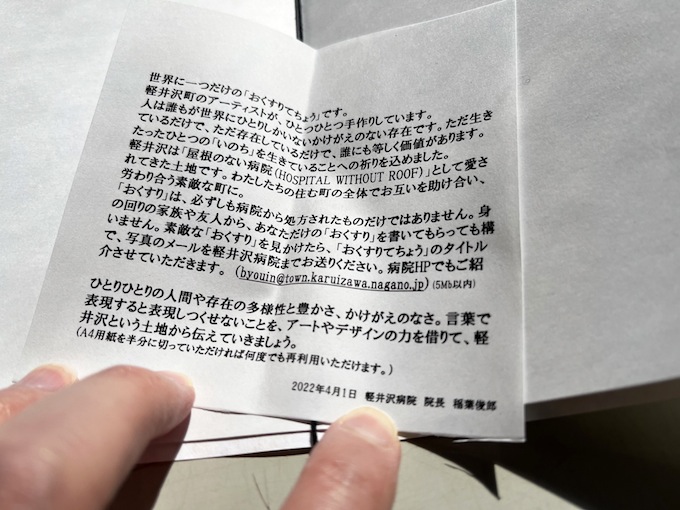 世界に一つだけの「おくすりてちょう」です。
軽井沢町のアーティストが、ひとつひとつ手作りしています。
人は誰もが世界にひとりしかいないかけがえのない存在です。ただ生き
ているだけで、ただ存在しているだけで、誰にも等しく価値があります。
たったひとつの「いのち」を生きていることへの祈りを込めました。
軽井沢は「屋根のない病院(HOSPITAL WITHOUT ROOF)」として愛さ
れてきた土地です。わたしたちの住む町の全体でお互いを助け合い、
労わり合う素敵な町に。
「おくすり」は、必ずしも病院から処方されたものだけではありません。身
の回りの家族や友人から、あなただけの「おくすり」を書いてもらっても構
いません。素敵な「おくすり」を見かけたら、「おくすりてちょう」のタイトル
で、写真のメールを軽井沢病院までお送りください。病院HPでもご紹
介させていただきます。(byouin@town.karuizawa.nagano.jp)(5Mb以内)
ひとりひとりの人間や存在の多様性と豊かさ、かけがえのなさ。言葉で
表現すると表現しつくせないことを、アートやデザインの力を借りて、軽
井沢という土地から伝えていきましょう。
(A4用紙を半分に切っていただければ何度でも再利用いただけます。)
2022年4月1日 軽井沢病院 院長 稲葉俊郎